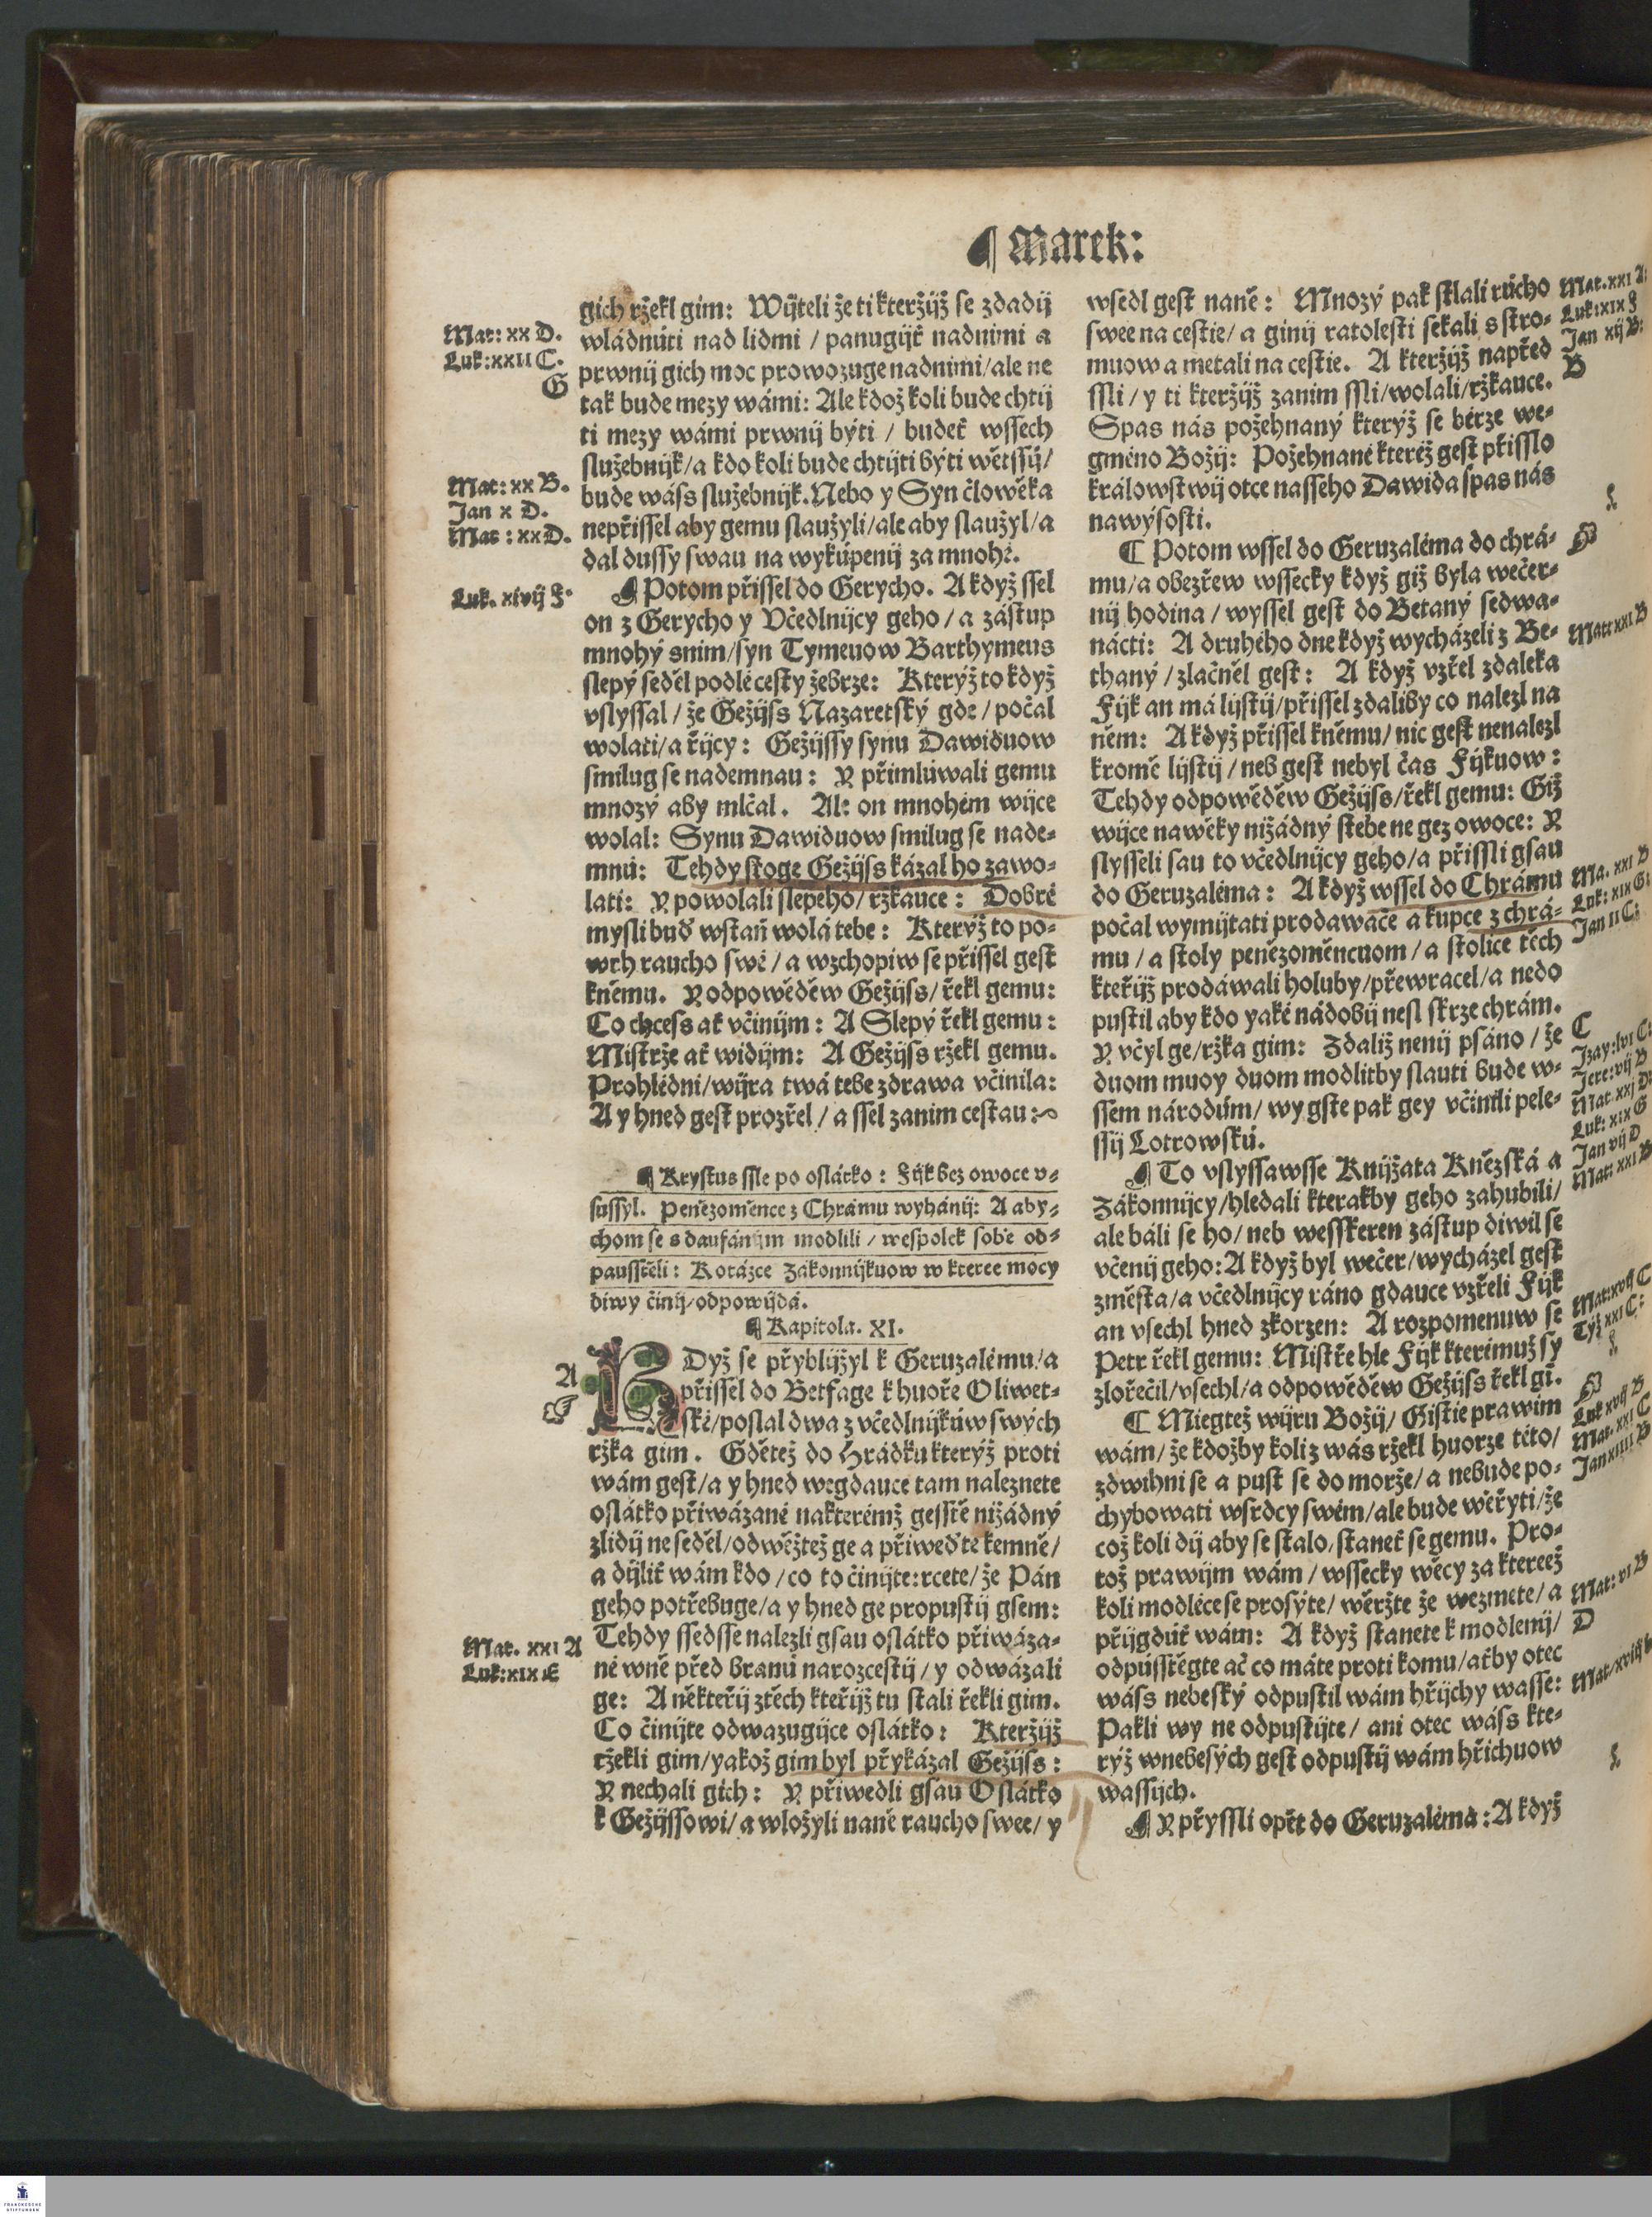 ¶ Marek:
Mat: xx D.
Luk: xxII C.
G
Mat: xx B.
Jan x D.
Mat: xx D.
Luk. xivij F.
gich ržekl gim: Wijteli že ti kteržijž se zdadij
wládnúti nad lidmi / panugijť nadnimi a
prwnij gich moc prowozuge nadnimi / ale ne
tak bude mezy wámi: Ale kdož koli bude chtij
ti mezy wámi prwnij býti / budeť wssech
služebnijk / a kdo koli bude chtijti býti wětssij /
bude wáss služebnijk. Nebo y Syn člowěka
nepřissel aby gemu slaužyli / ale aby slaužyl / a
dal dussy swau na wykúpenij za mnohé.
¶ Potom přissel do Gerycho. A když ssel
on z Gerycho y Včedlnijcy geho / a zástup
mnohý snim / syn Tymeuow Barthymeus
slepý seděl podlé cesty žebrze: Kterýž to když
vslyssal / že Gežijss Nazaretský gde / počal
wolati / a řijcy: Gežijssy synu Dawiduow
smilug se nademnau: Y přimlúwali gemu
mnozý aby mlčal. Ale on mnohém wijce
wolal: Synu Dawiduow smilug se nade-
mnú: Tehdy stoge Gežijss kázal ho zawo-
lati: Y powolali slepeho / ržkauce: Dobré
mysli buď wstaň wolá tebe: Kterýž to po-
wrh raucho swé / a wzchopiw se přissel gest
kněmu. Y odpowěděw Gežijss / řekl gemu:
Co chcess ať včinijm: A Slepý řekl gemu:
Mistrže ať widijm: A Gežijss ržekl gemu.
Prohlédni / wijra twá tebe zdrawa včinila:
A y hned gest prozřel / a ssel zanim cestau:
¶ Krystus ssle po oslátko: Fijk bez owoce v-
sussyl. Peňezoměnce z Chrámu wyhánij: A aby-
chom se s daufánijm modlili / wespolek sobě od-
pausstěli: K otázce Zákonnijkuow w kteree mocy
diwy činij / odpowijdá.
¶ Kapitola. XI.
A
KDyž se přyblijžyl k Geruzalému / a
přissel do Betfage k huoře Oliwet-
ské / poslal dwa z včedlnijkúw swých
ržka gim. Gdětež do Hrádku kterýž proti
wám gest / a y hned wegdauce tam naleznete
oslátko přiwázané nakterémž gesstě nižádný
zlidij ne seděl / odwěžtež ge a přiweďte kemně /
a dijliť wám kdo / co to činijte: rcete / že Pán
geho potřebuge / a y hned ge propustij gsem:
Tehdy ssedsse nalezli gsau oslátko přiwáza-
né wně před branú narozcestij / y odwázali
ge: A někteřij ztěch kteřijž tu stali řekli gim.
Co činijte odwazugijce oslátko: Kteržijž
ržekli gim / yakož gim byl přykázal Gežijss:
Y nechali gich: Y přiwedli gsau Oslátko
k Gežijssowi / a wložyli naně raucho swee / y
Mat. xxI A
Luk: xIx E
wsedl gest naně: Mnozý pak stlali rúcho
swee na cestie / a ginij ratolesti sekali s stro-
muow a metali na cestie. A kteržijž napřed
ssli / y ti kteržijž zanim ssli / wolali / ržkauce.
Spas nás požehnaný kterýž se bérze we-
gméno Božij: Požehnané kteréž gest přisslo
králowstwij otce nasseho Dawida spas nás
nawýsosti.
¶ Potom wssel do Geruzaléma do chrá-
mu / a obezřew wssecky když giž byla wečer-
nij hodina / wyssel gest do Betaný sedwa-
nácti: A druhého dne když wycházeli z Be-
thaný / zlačněl gest: A když vzřel zdaleka
Fijk an má lijstij / přissel zdaliby co nalezl na
něm: A když přissel kněmu / nic gest nenalezl
kromě lijstij / neb gest nebyl čas Fijkuow:
Tehdy odpowěděw Gežijss / řekl gemu: Giž
wijce nawěky nižádný stebe ne gez owoce: Y
slysseli sau to včedlnijcy geho / a přissli gsau
do Geruzaléma: A když wssel do Chrámu
počal wymijtati prodawače a kupce z chrá-
mu / a stoly peněžoměncuom / a stolice těch
kteřijž prodáwali holuby / přewracel / a nedo
pustil aby kdo yaké nádobij nesl skrze chrám.
Y včyl ge / ržka gim: Zdaliž nenij psáno / že
duom muoy duom modlitby slauti bude w-
ssem národúm / wy gste pak gey včinili pele-
ssij Lotrowskú.
¶ To vslyssawsse Knijžata Kněžská a
Zákonnijcy / hledali kterakby geho zahubili /
ale báli se ho / neb wessken zástup diwil se
včenij geho: A když byl wečer / wycházel gest
změsta / a včedlnijcy ráno gdauce vzřeli Fijk
an vsechl hned zkorzen: A rozpomenuw se
Petr řekl gemu: Mistře hle Fijk kterimuž sy
zlořečil / vsechl / a odpowěděw Gežijss řekl gi.
¶ Miegtež wijru Božij / Gistie prawim
wám / že kdožby koli z wás ržekl huorze této /
zdwihni se a pust se do morže / a nebude po-
chybowati wsrdcy swém / ale bude wěřyti / že
což koli dij aby se stalo, staneť se gemu. Pro-
tož prawijm wám / wssecky wěcy za ktereež
koli modléce se prosýte / wěržte že wezmete / a
přijgdúť wám: A když stanete k modlenij /
odpússtěgte ač co máte proti komu / aťby otec
wáss nebeský odpustil wám hřijchy wasse:
Pakli wy ne odpustijte / ani otec wáss kte-
rýž wnebesých gest odpustij wám hřichuow
wassijch.
¶ Y přyssli opět do Geruzaléma: A když
Mat. xxI A:
Luk: xIx F
Jan xij B:
B
Mat: xxI B
Ma. xxI B
Luk: xIx G:
Jan II C:
C
Izay: lvI C:
Jere: vij B
Mat. xxj B
Luk: xIx G
Jan vij D
Mat: xxI B
Mat: xvij C
Týž xxI C:
Luk xvij B
Mat. xxI C
Jan xIIII B
Mat: vI B
D
Mat / xviij
FRANCKESCHE
STIFTUNGEN